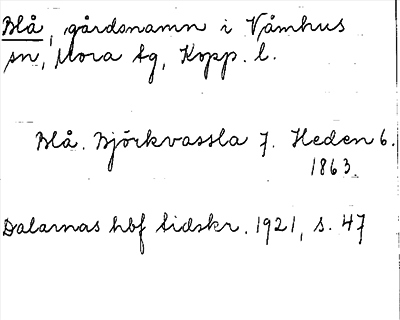 Blå, gårdsnamn i Våmhus
sn, Mora tg, Kopp. l.
Blå. Björkvassla 7. Heden 6.
1863.
Dalarnas hbf tidskr. 1921, s. 47